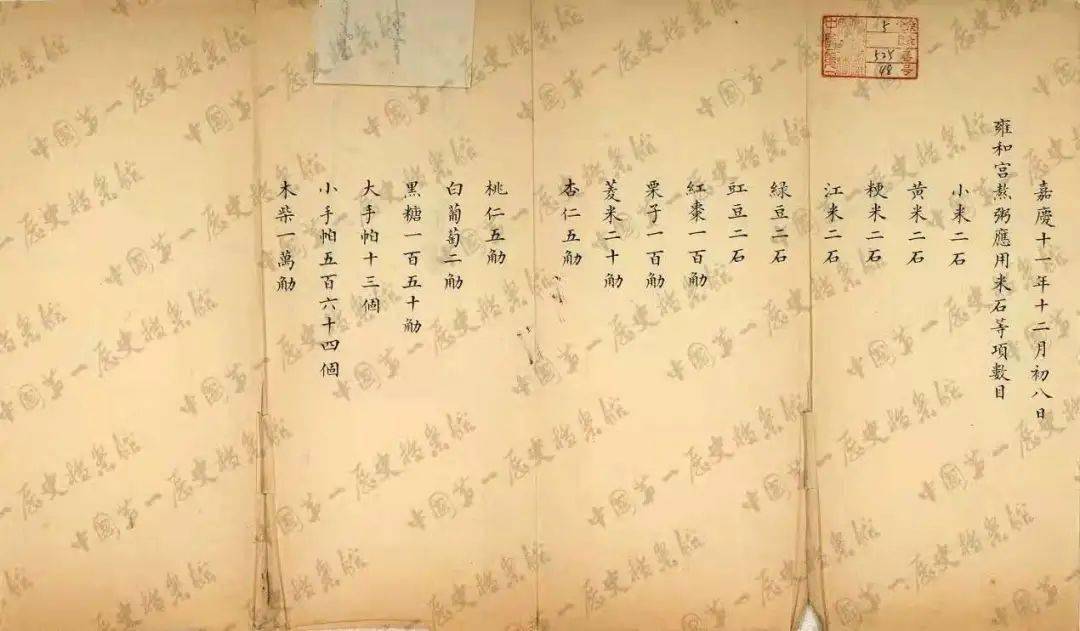 嘉慶十一年十二月初八日
雍和宮熬粥應用米石等項數目
小米二石
黃米二石
粳米二石
江米二石
綠豆二石
豇豆二石
紅棗一百觔
栗子一百觔
菱米二十觔
杏仁五觔
桃仁五觔
白葡萄二觔
黑糖一百五十觔
大手帕十三個
小手帕五百六十四個
木柴一萬觔
5
525
48
中國第一歷史檔案館